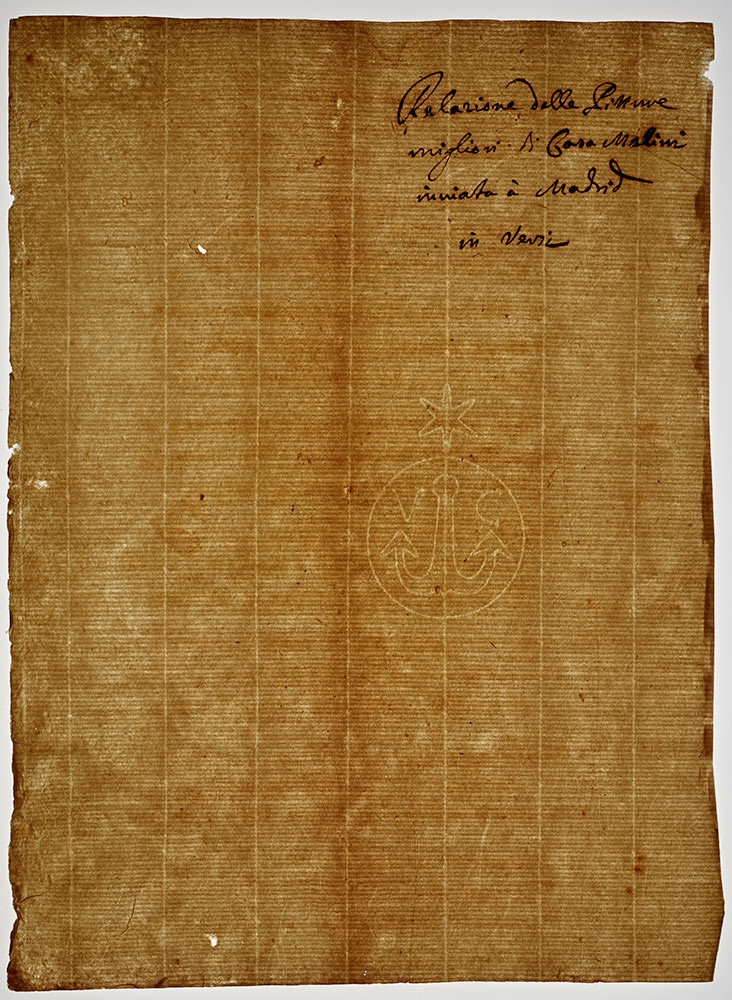 Relazione delle Pitture
migliori di Casa Melini
inviata à Madrid
in Versi
V S